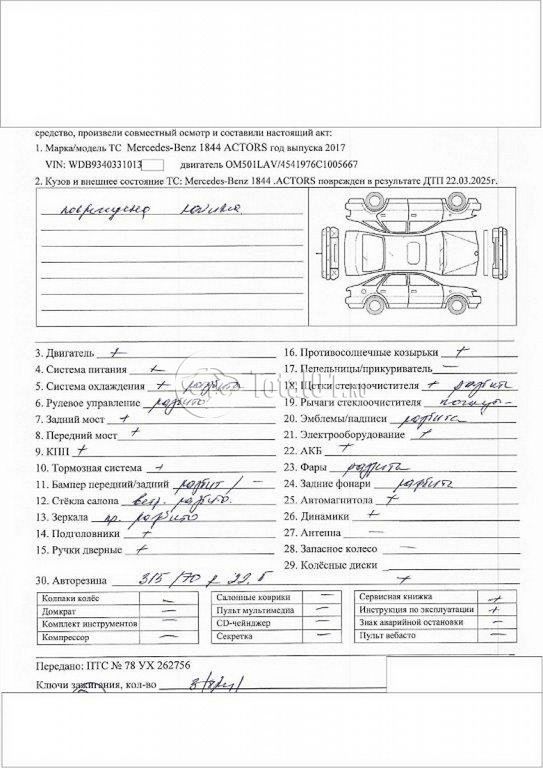 средство, произвели совместный осмотр и составили настоящий акт:
1. Марка/модель ТС Mercedes-Benz 1844 ACTORS год выпуска 2017
VIN: WDB9340331013 двигатель OM501LAV/4541976C1005667
2. Кузов и внешнее состояние ТС: Mercedes-Benz 1844 .ACTORS поврежден в результате ДТП 22.03.2025г.
повреждена кабина
3. Двигатель +
4. Система питания +
5. Система охлаждения + разбита
6. Рулевое управление разбито
7. Задний мост +
8. Передний мост +
9. КПП +
10. Тормозная система +
11. Бампер передний/задний разбит / –
12. Стёкла салона ветр. разбито.
13. Зеркала пр. разбито
14. Подголовники +
15. Ручки дверные +
16. Противосолнечные козырьки +
17. Пепельницы/прикуриватель –
18. Щетки стеклоочистителя + разбиты
19. Рычаги стеклоочистителя
20. Эмблемы/надписи разбита
21. Электрооборудование +
22. АКБ +
23. Фары разбиты
24. Задние фонари разбиты
25. Автомагнитола +
26. Динамики +
27. Антенна –
28. Запасное колесо –
29. Колёсные диски +
30. Авторезина 315/70 р 22.5
Колпаки колёс –
Домкрат –
Комплект инструментов –
Компрессор –
Салонные коврики –
Пульт мультимедиа –
CD-чейнджер –
Секретка –
Сервисная книжка +
Инструкция по эксплуатации +
Знак аварийной остановки –
Пульт вебасто –
Передано: ПТС № 78 УХ 262756
Ключи зажигания, кол-во